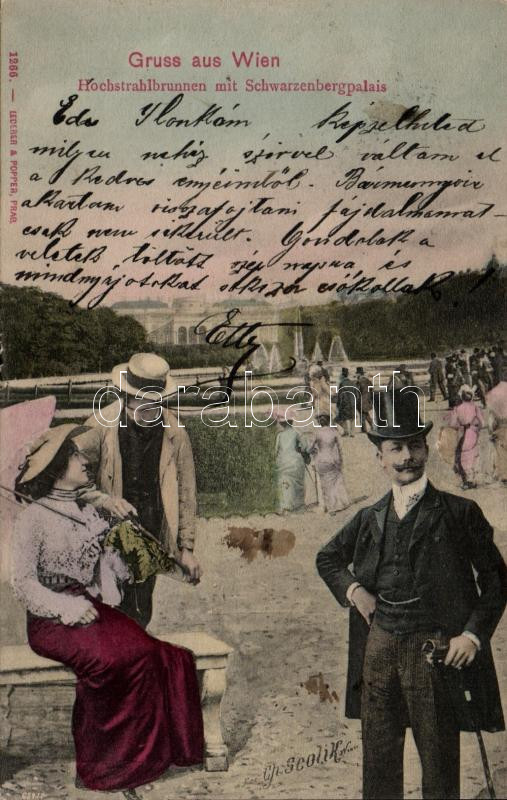 Gruss aus Wien
Hochstrahlbrunnen mit Schwarzenbergpalais
1266. — LEDERER & POPPER, PRAG.
Édes Ilonkám képzelheted
milyen nehéz szivvel váltam el
a kedves enyéimtől. Bármennyire
akartam visszafojtani fájdalmamat
csak nem sikerült. Gondolok a
veletek töltött szép napra és
mindnyájotokat sokszor csókollak!
Etty
darabanth
Ch. Scolik Wien